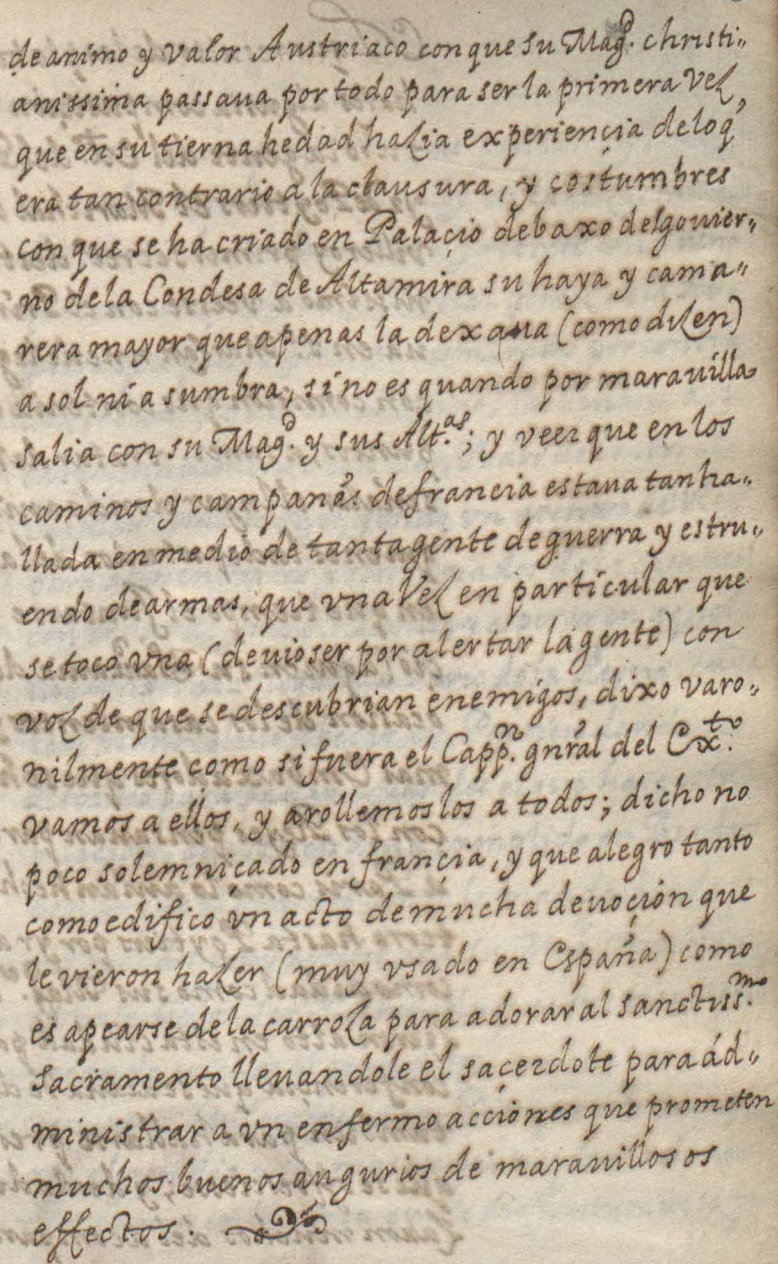 de animo y valor Austriaco con que su Mag.d christi-
anissima passaua por todo para ser la primera vez,
que en su tierna hedad hazia experiençia de loq̃
era tan contrario a la clausura, y costumbres
con que se ha criado en Palaçio debaxo del gouier-
no de la Condesa de Altamira su haya y cama-
rera mayor que apenas la dexaua (como dizen)
a sol ni a sumbra, si no es quando por marauilla
salia con su Mag.d y sus Alt.as; y veer que en los
caminos y campañas de francia estaua tan ha-
llada en medio de tanta gente de guerra y estru-
endo de armas, que vna vez en particular que
se toco vna (deuio ser por alertar la gente) con
voz de que se descubrian enemigos, dixo varo-
nilmente como si fuera el Capp.n gnral del Ex.to
vamos a ellos, y arollemoslos a todos; dicho no
poco solemniçado en françia, y que alegro tanto
como edifico vn acto de mucha deuoçion que
le vieron hazer (muy vsado en España) como
es apearse de la carroza para adorar al sanctiss.mo
sacramento lleuandole el sacerdote para ad-
ministrar a vn enfermo acciones que prometen
muchos buenos augurios de marauillosos
effectos.